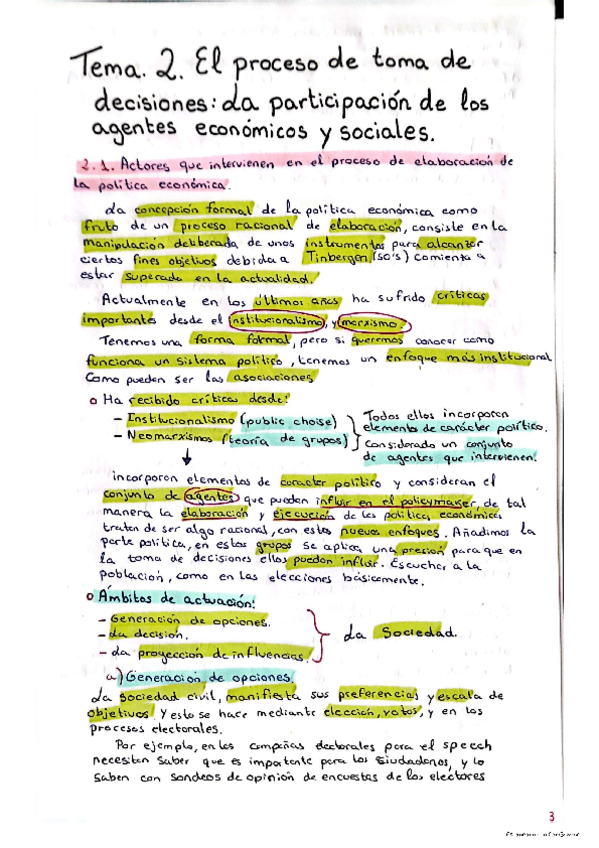 Tema. 2. El proceso de toma de
decisiones: La participación de los
agentes económicos y sociales.
2.1. Actores que intervienen en el proceso de elaboración de
la política económica.
La concepción formal de la política económica como
fruto de un proceso racional de elaboración, consiste en la
manipulación deliberada de unos instrumentos para alcanzar
ciertos fines objetivos debida a Tinbergen (50's) comienta a
estar superada en la actualidad.
Actualmente en los últimos años ha sufrido críticas
importantes desde el institucionalismo, y marxismo.
Tenemos una forma formal, pero si queremos conocer como
funciona un sistema político, tenemos un enfoque más institucional
Como pueden ser las asociaciones
Ha recibido críticas desde:
- Institucionalismo (public choise)
- Neomarxismos (teoría de grupos)
Todos ellos incorporen
elemento de carácter político.
Considerado un conjunto
de agentes que intervienen.
incorporen elementos de caracter político y consideran el
conjunto de agentes que pueden influir en el policymaker, de tal
manera la elaboración y ejecución de las política económicas
tratan de ser algo racional, con estos nuevos enfoques. Añadimos la
parte política, en estos grupos se aplica una presión para que en
la toma de decisiones ellos puedan influir. Escuchar a la
población, como en las elecciones básicamente.
Ámbitos de actuación:
- Generación de opciones.
- La decisión.
- La proyección de influencias.
La Sociedad.
a) Generación de opciones.
La sociedad civil, manifiesta sus preferencias y escala de
objetivos. Y esto se hace mediante elección, votos, y en los
procesos electorales.
Por ejemplo, en las campañas electorales para el speech
necesitan saber que es importante para los ciudadanos, y lo
saben con sondeos de opinión de encuestas de los electores
3